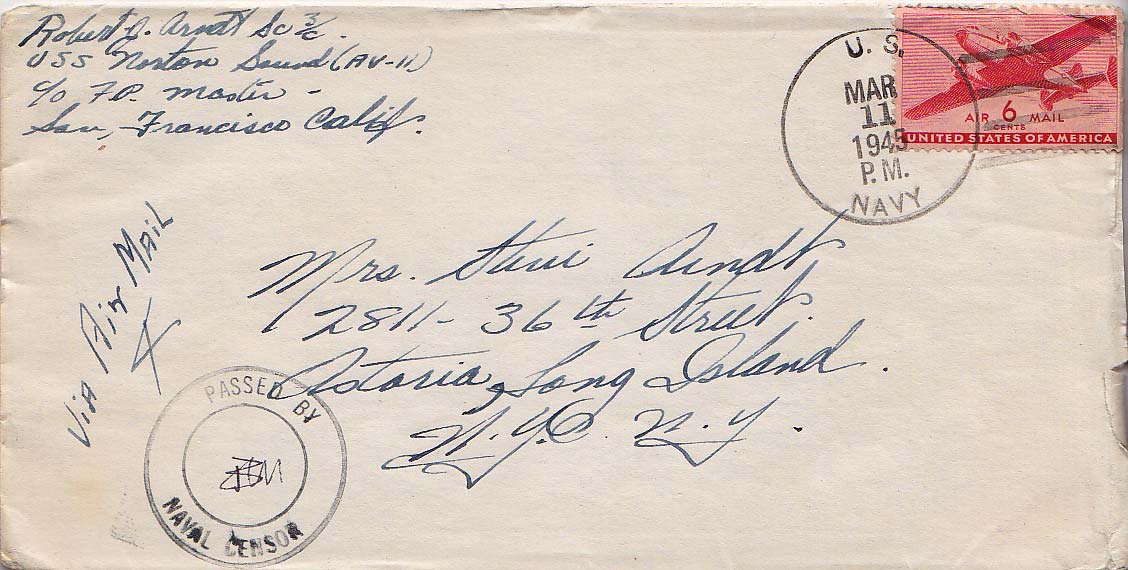 Robert J. Arndt Sc 3/c.
USS Norton Sound (AV-11)
c/o F.P. Master -
San, Francisco Calif.
U. S.
MAR
11
1945
P.M.
NAVY
AIR 6 MAIL
CENTS
UNITED STATES OF AMERICA
Via Air Mail
Mrs. Stevi Arndt
2811- 36th Street.
Astoria, Long Island.
N.Y.C. N.Y.
PASSED BY
NAVAL CENSOR